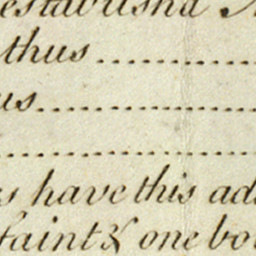 establish'd
thus ....................
us ....................
....................
s have this ad
faint & one bo